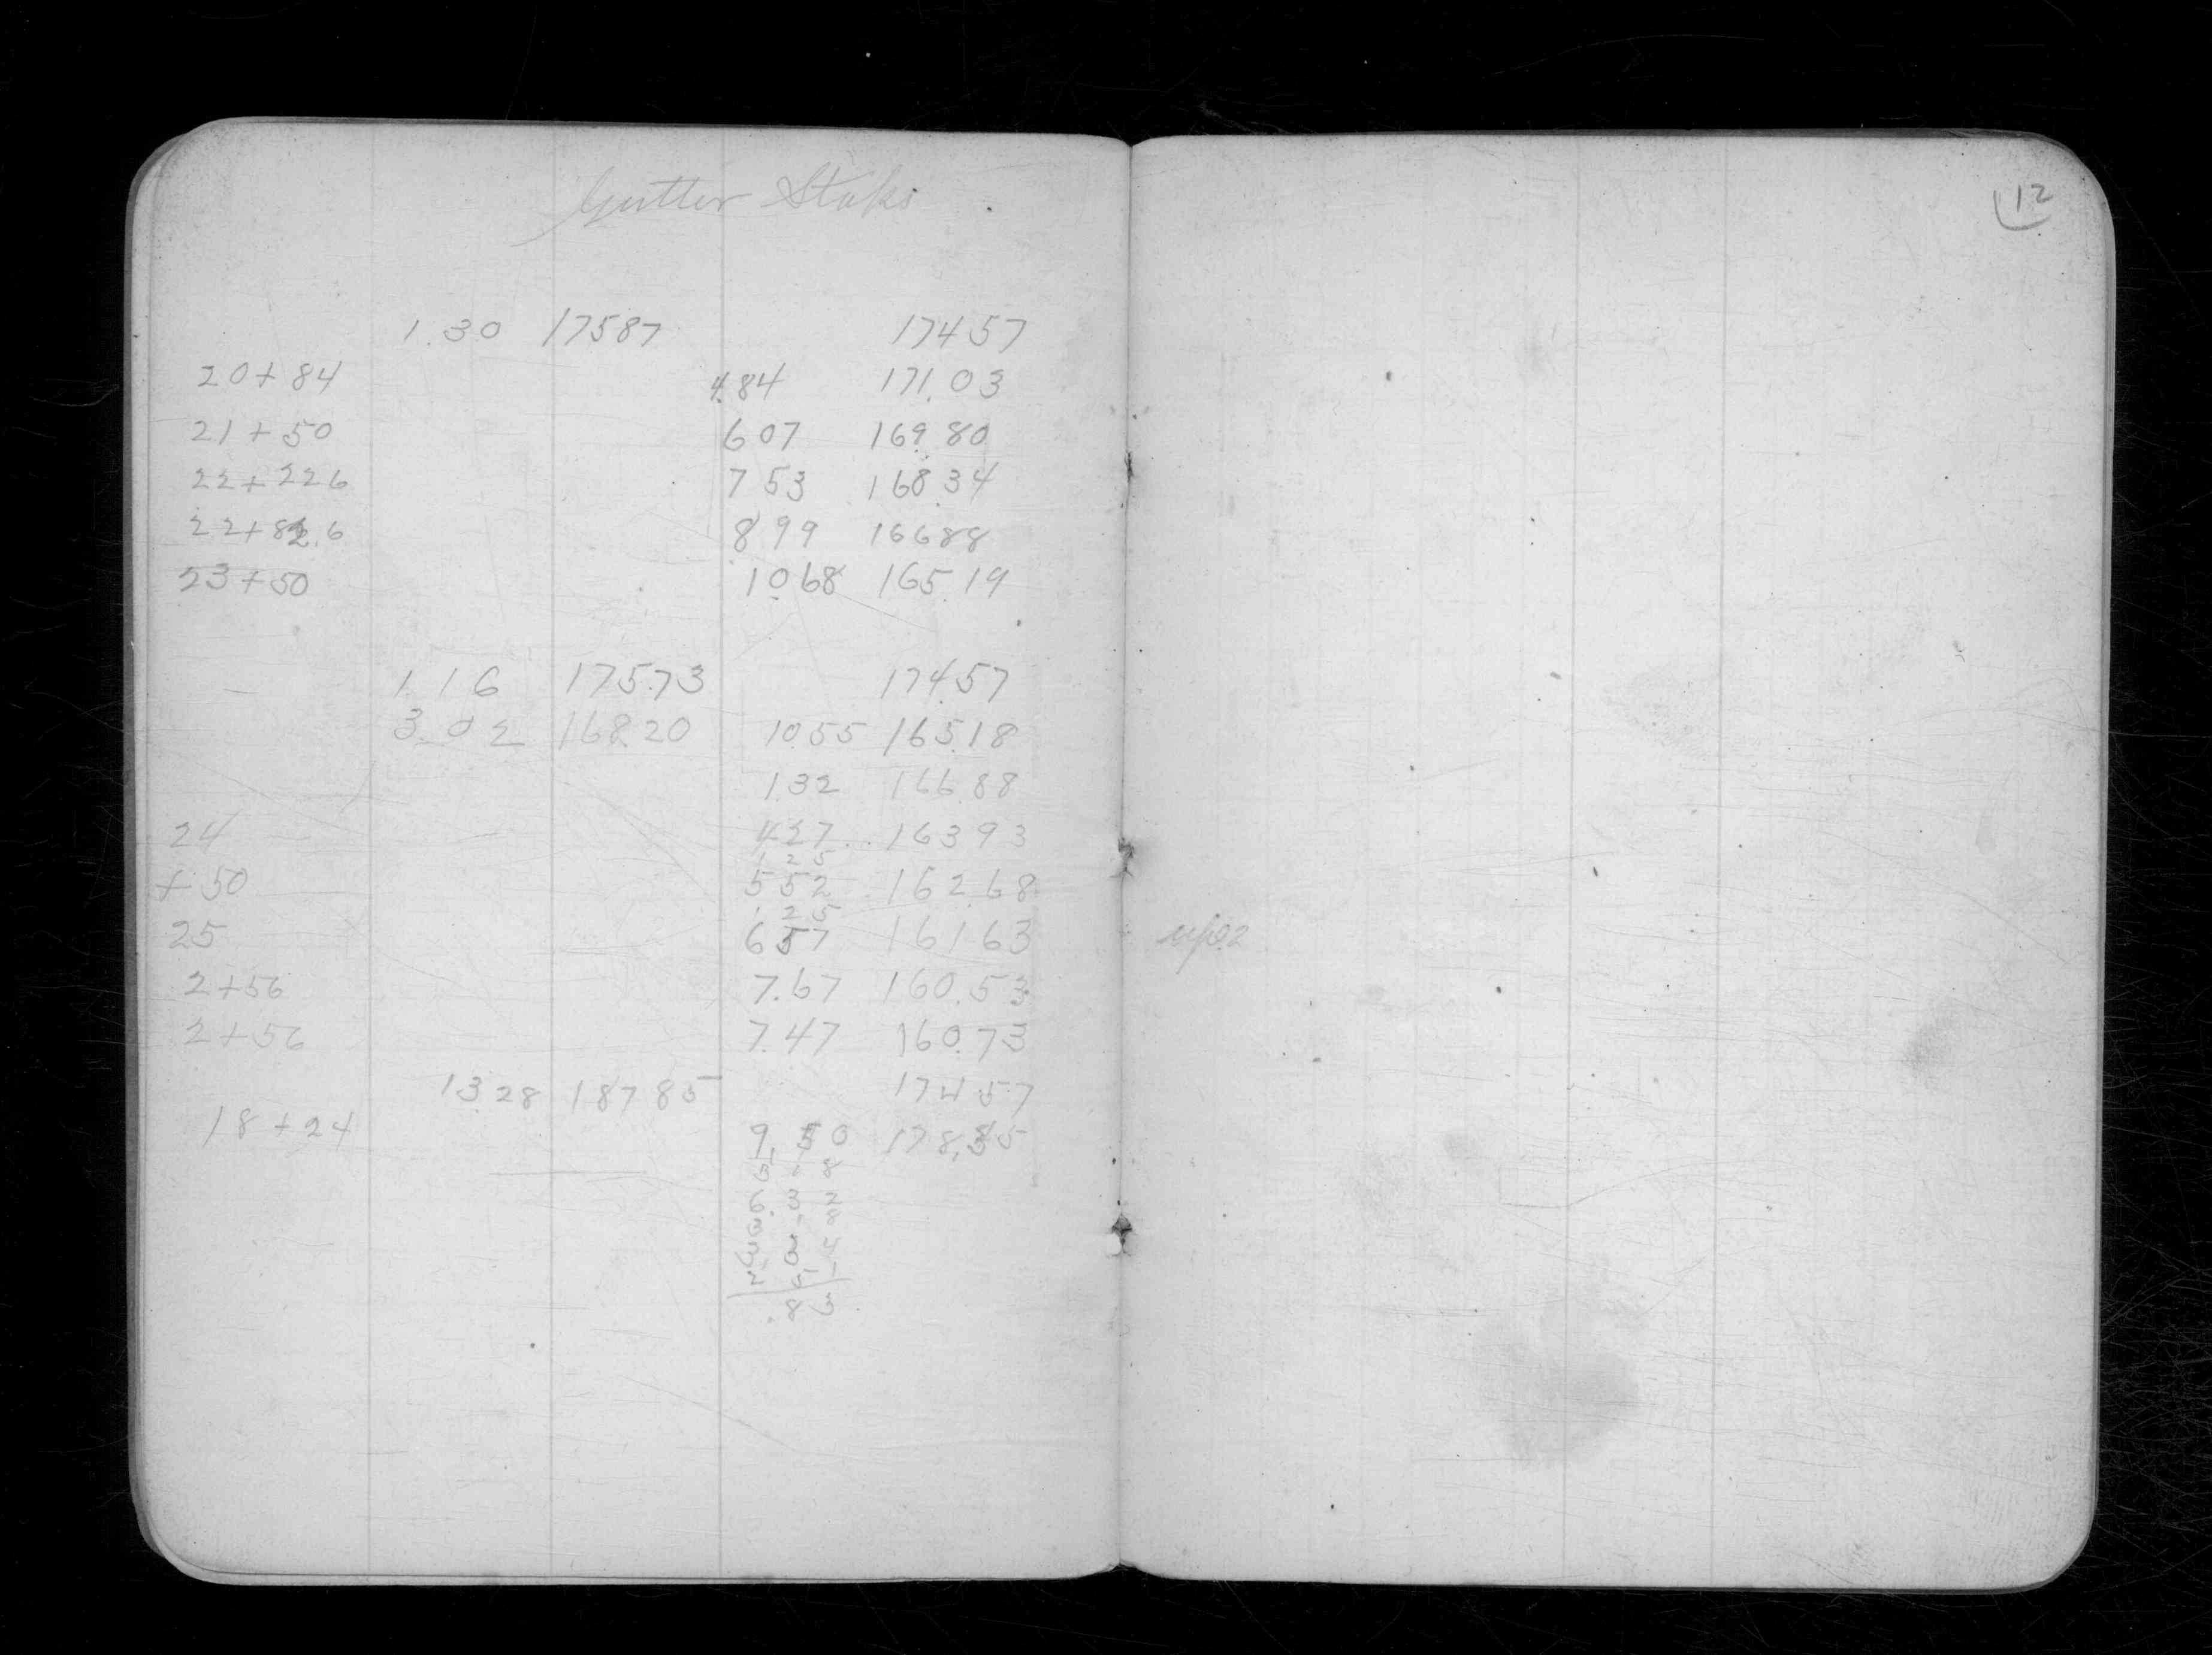 Gutter Staks
12
1.30 17587 17457
20+84 4.84 171.03
21+50 607 169.80
22+226 753 168.34
22+82.6 899 16688
23+50 10.68 165.19
1.16 175.73 174.57
3.02 168.20 10.55 165.18
1.32 166.88
24 427 16393
125
+50 552 162.68
25 657 16163 up 0.2
2+56 7.67 160.53
2+56 7.47 160.73
13.28 18785 17457
18+24 9.50 178.35